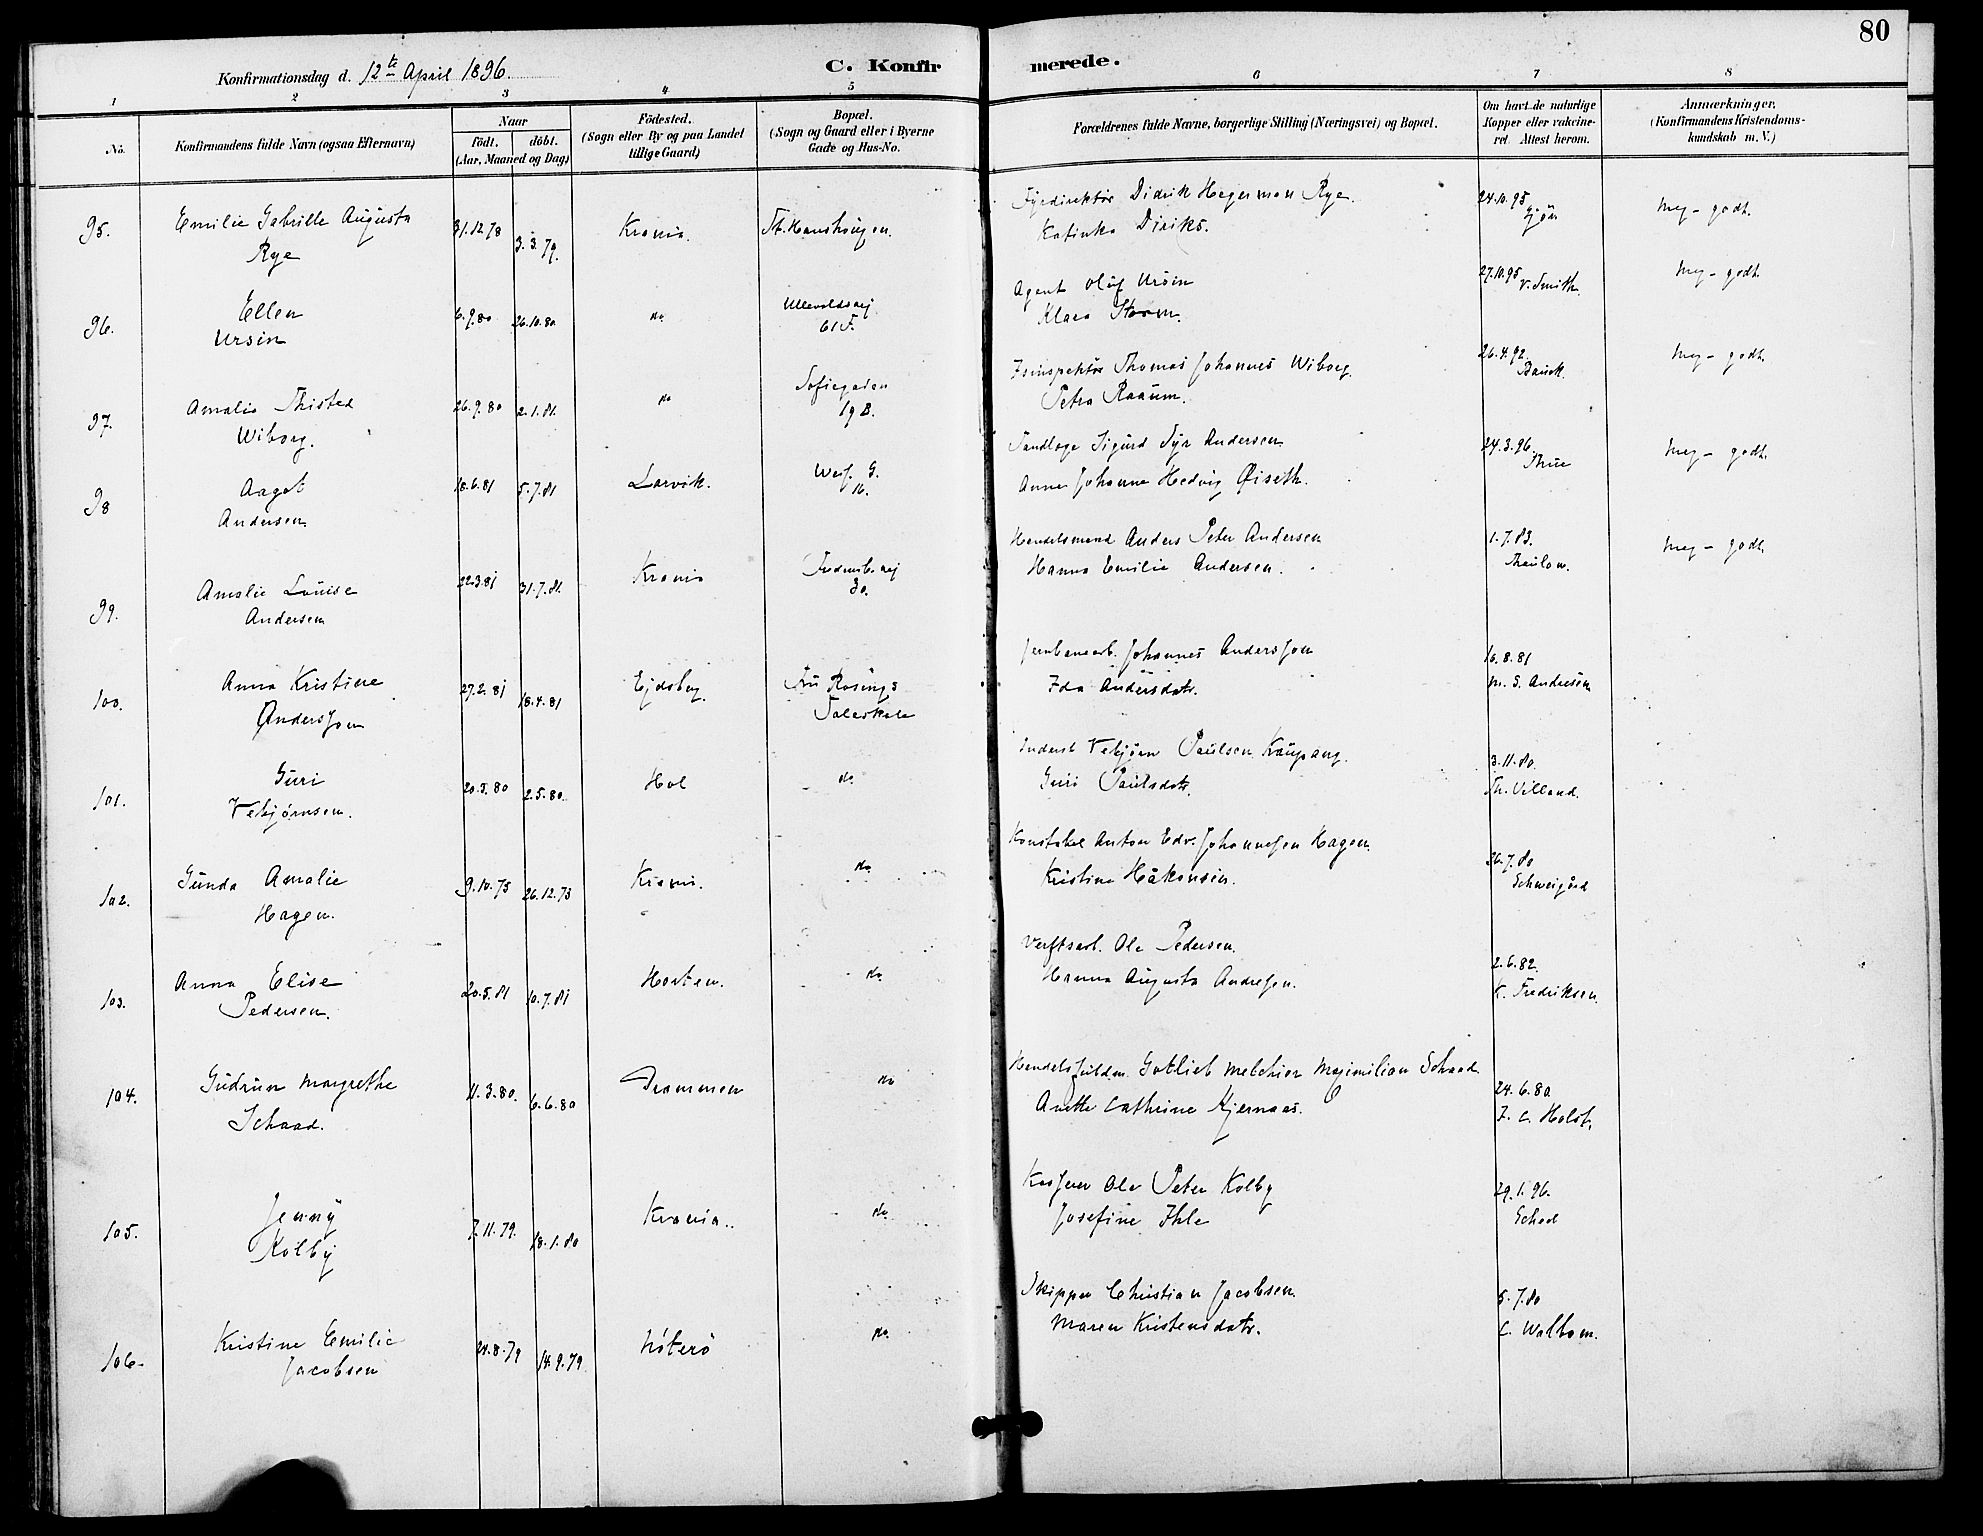 80
Konfirmationsdag d. 12te April 1896.
C. Konfirmerede.
1 2 3 4 5 6 7 8
No.
Konfirmandens fulde Navn (ogsaa Efternavn)
Naar
födt. döbt.
(Aar, Maaned og Dag)
Födested.
(Sogn eller By og paa Landet
tillige Gaard)
Bopæl.
(Sogn og Gaard eller i Byerne
Gade og Hus-No.
Forældrenes fulde Navne, borgerlige Stilling (Næringsvei) og Bopæl.
Om havt de naturlige
Kopper eller vakcine-
ret. Attest herom.
Anmærkninger.
(Konfirmandens Kristendoms-
kundskab m. V.)
95. Emilie Gabrille Augusta
Rye
31.12.78 3.3.79. Krania. St. Hanshaugen.
Fyrdirektör Didrik Hegerman Rye.
Katinka Diriks.
24.10.95 Meg - godt.
96. Ellen
Ursin
6.9.80 26.10.80 do Ullevoldsvej
61 F.
Agent Oluf Ursin
Klara Storm.
27.10.95 V. Smith. Meg - godt.
97. Amalie Thisted
Wiborg.
26.9.80 2.1.81. do Sofiegaden
19 B.
Isinspektör Thomas Johannes Wiborg.
Petra Raaum.
26.4.92. Meg - godt.
98 Aagot
Andersen.
18.6.81 5.7.81 Larvik. G.
16.
Tandlæge Sigurd Tyr Andersen.
Anna Johanne Hedvig Øiseth.
24.3.96. Thue Meg - godt.
99. Amalie Louise
Andersen
22.3.81 31.7.81. Krania
30.
Handelsmand Anders Peter Andersen
Hanna Emilie Andersen.
1.7.83.
Thaulow. Meg - godt.
100. Anna Kristine
Andersson
27.2.81 18.4.81 Ejdsberg. Fru Rosings
Taleskole
Jernbanearb. Johannes Andersson
Ida Andersdatr.
16.8.81
M. S. Andresen
101. Guri
Vebjørnsen.
20.3.80 2.5.80. Hol do
Inderst Vebjørn Paulsen Kaupang.
Guri Paulsdatr.
3.11.80.
Th. Villand.
102. Gunda Amalie
Hagen.
9.10.73 26.12.73 Krania. do
Konstabel Anton Edv. Johannesen Hagen.
Kristine Håkonsen.
26.7.80
Schweigård
103. Anna Elise
Pedersen.
20.5.81 10.7.81 Horten. do
Verftsarb. Ole Pedersen.
Hanna Augusta Andresen.
2.6.82.
K. Fredriksen.
104. Gudrun Margrethe
Schaad.
11.3.80. 6.6.80 Drammen do
Handelsfuldm. Gotlieb Melchior Maximilian Schaad.
Anette Cathrine Kjernaas.
24.6.80.
F. C. Holst.
105. Jenny
Kolby
7.11.79. 18.1.80 Krania. do
Kasserer Ole Peter Kolby
Josefine Ihle
29.1.96.
Schod
106. Kristine Emilie
Jacobsen
21.8.79 14.9.79. Nöterö do
Skipper Christian Jacobsen.
Maren Kristensdatr.
5.7.80
C. Walbom.